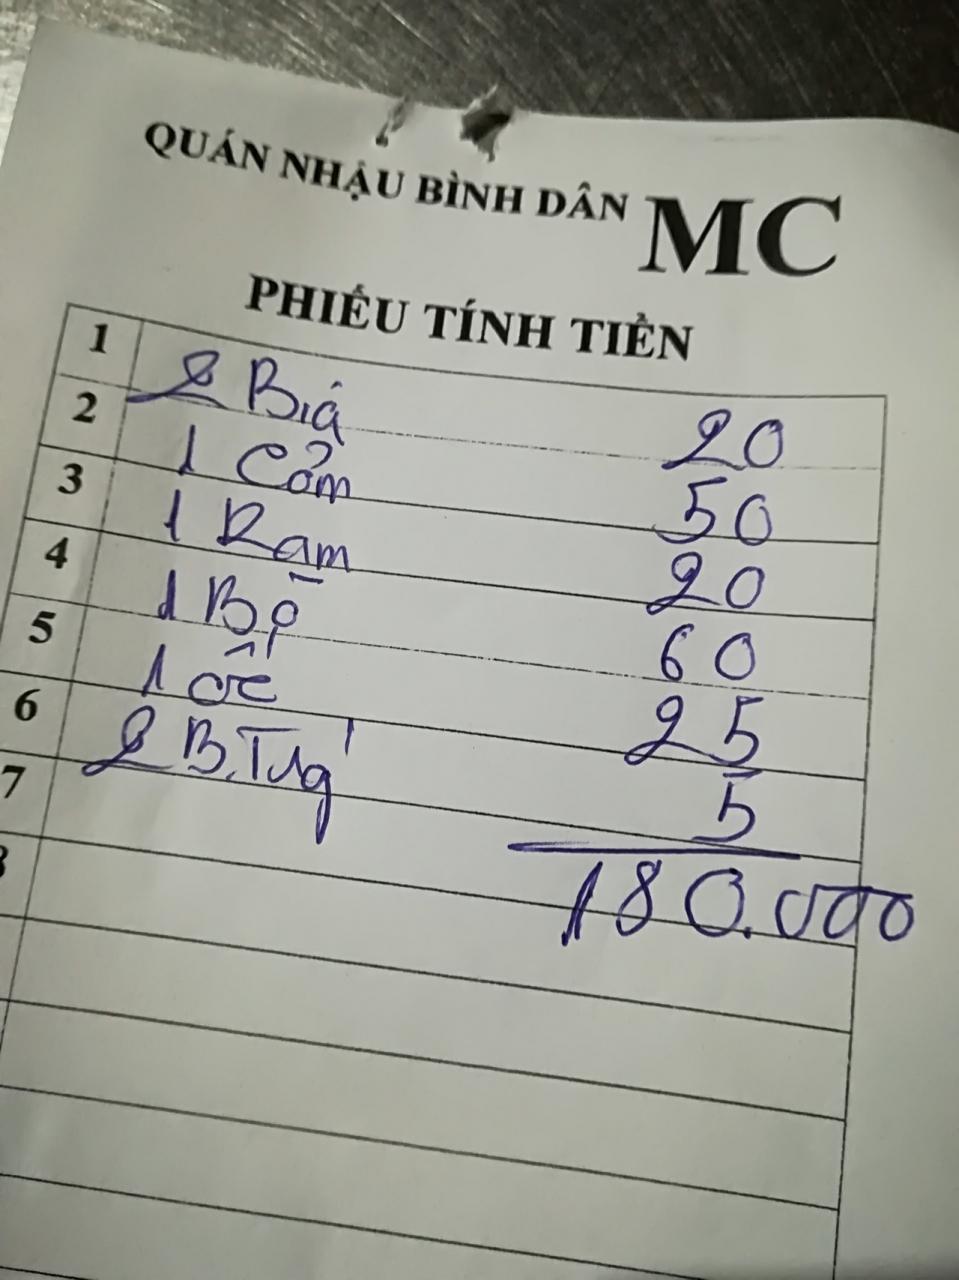 QUÁN NHẬU BÌNH DÂN MC
PHIẾU TÍNH TIỀN
1 2 Bia 20
2 1 Cơm 50
3 1 Ram 20
4 1 Bò 60
5 1 ốc 25
6 2 B.Trứg 5
7 180.000
8